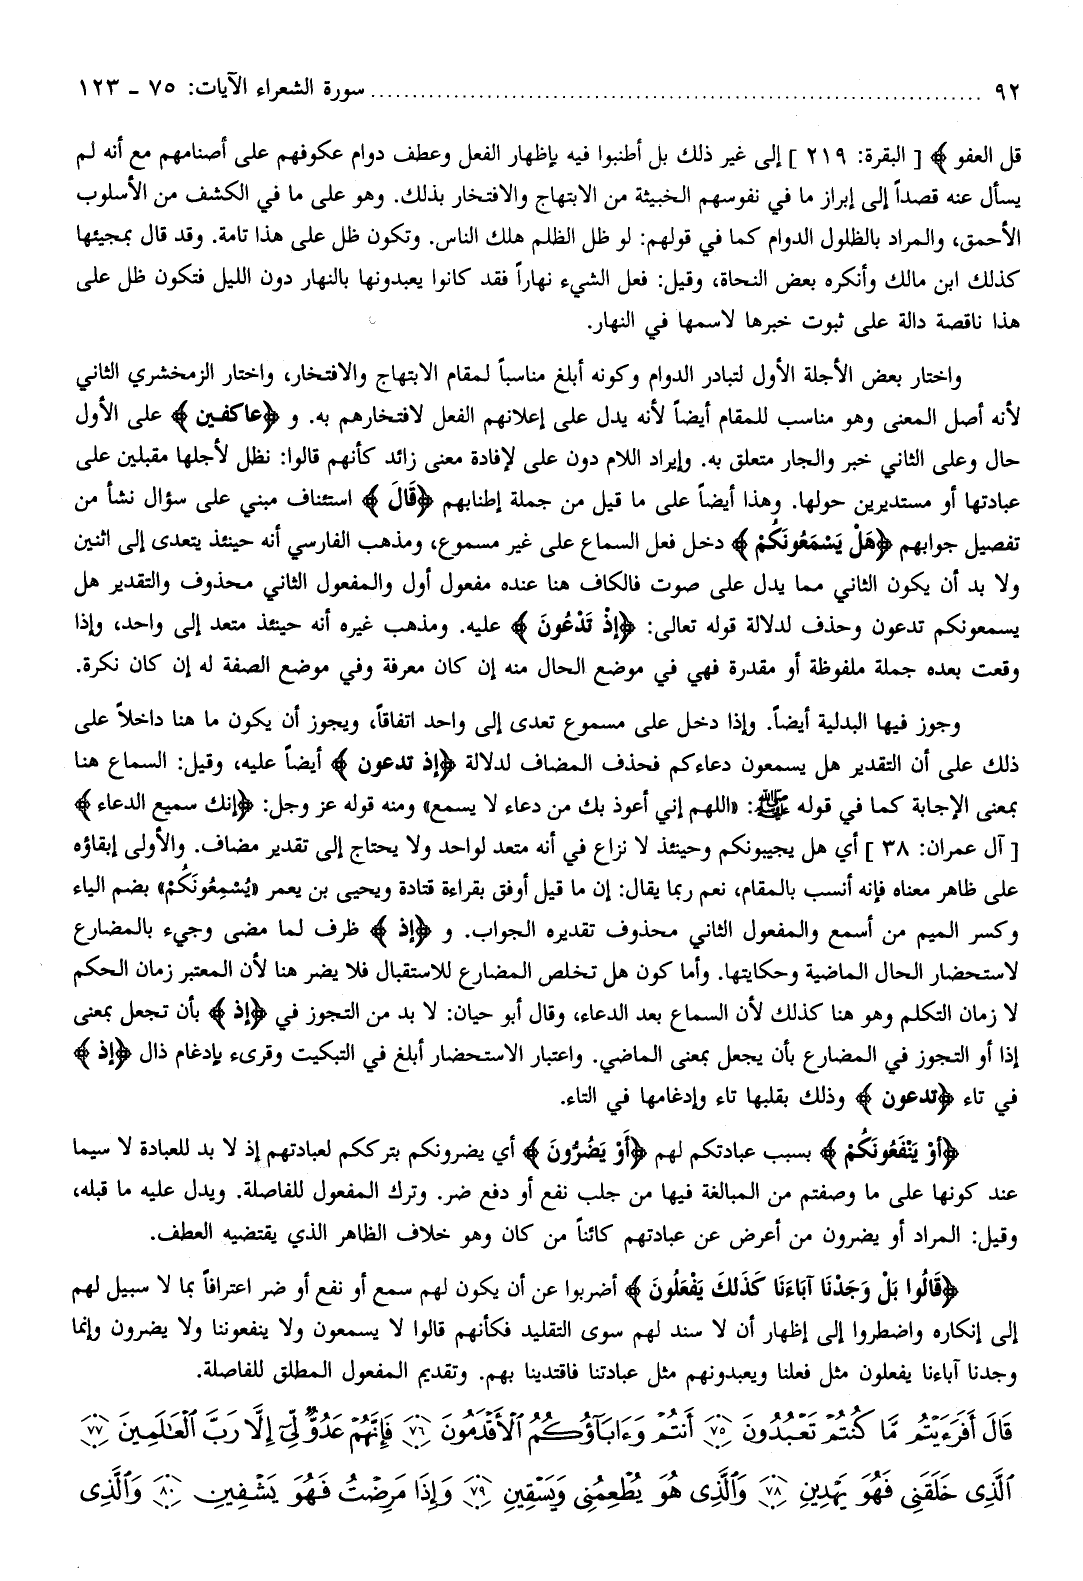 ٩٢ ........................................ سورة الشعراء الآيات: ٧٥ ـ ١٢٣
قل العفو﴾ [ البقرة: ٢١٩ ] إلى غير ذلك بل أطنبوا فيه بإظهار الفعل وعطف دوام عكوفهم على أصنامهم مع أنه لم
يسأل عنه قصداً إلى إبراز ما في نفوسهم الخبيثة من الابتهاج والافتخار بذلك. وهو على ما في الكشف من الأسلوب
الأحمق، والمراد بالظلول الدوام كما في قولهم: لو ظل الظلم هلك الناس. وتكون ظل على هذا تامة. وقد قال بمجيئها
كذلك ابن مالك وأنكره بعض النحاة، وقيل: فعل الشيء نهاراً فقد كانوا يعبدونها بالنهار دون الليل فتكون ظل على
هذا ناقصة دالة على ثبوت خبرها لاسمها في النهار.
واختار بعض الأجلة الأول لتبادر الدوام وكونه أبلغ مناسباً لمقام الابتهاج والافتخار، واختار الزمخشري الثاني
لأنه أصل المعنى وهو مناسب للمقام أيضاً لأنه يدل على إعلانهم الفعل لافتخارهم به. و ﴿عاكفين﴾ على الأول
حال وعلى الثاني خبر والجار متعلق به. وإيراد اللام دون على لإفادة معنى زائد كأنهم قالوا: نظل لأجلها مقبلين على
عبادتها أو مستديرين حولها. وهذا أيضاً على ما قيل من جملة إطنابهم ﴿قَالَ﴾ استئناف مبني على سؤال نشأ من
تفصيل جوابهم ﴿هَلْ يَسْمَعُونَكُمْ﴾ دخل فعل السماع على غير مسموع، ومذهب الفارسي أنه حينئذ يتعدى إلى اثنين
ولا بد أن يكون الثاني مما يدل على صوت فالكاف هنا عنده مفعول أول والمفعول الثاني محذوف والتقدير هل
يسمعونكم تدعون وحذف لدلالة قوله تعالى: ﴿إذْ تَدْعُونَ﴾ عليه. ومذهب غيره أنه حينئذ متعد إلى واحد، وإذا
وقعت بعده جملة ملفوظة أو مقدرة فهي في موضع الحال منه إن كان معرفة وفي موضع الصفة له إن كان نكرة.
وجوز فيها البدلية أيضاً. وإذا دخل على مسموع تعدى إلى واحد اتفاقاً، ويجوز أن يكون ما هنا داخلاً على
ذلك على أن التقدير هل يسمعون دعاءكم فحذف المضاف لدلالة ﴿إذ تدعون﴾ أيضاً عليه، وقيل: السماع هنا
بمعنى الإجابة كما في قوله ﷺ: «اللهم إني أعوذ بك من دعاء لا يسمع» ومنه قوله عز وجل: ﴿إنك سميع الدعاء﴾
[ آل عمران: ٣٨ ] أي هل يجيبونكم وحينئذ لا نزاع في أنه متعد لواحد ولا يحتاج إلى تقدير مضاف. والأولى إبقاؤه
على ظاهر معناه فإنه أنسب بالمقام، نعم ربما يقال: إن ما قيل أوفق بقراءة قتادة ويحيى بن يعمر «يُسْمِعُونَكُمْ» بضم الياء
وكسر الميم من أسمع والمفعول الثاني محذوف تقديره الجواب. و ﴿إذ﴾ ظرف لما مضى وجيء بالمضارع
لاستحضار الحال الماضية وحكايتها. وأما كون هل تخلص المضارع للاستقبال فلا يضر هنا لأن المعتبر زمان الحكم
لا زمان التكلم وهو هنا كذلك لأن السماع بعد الدعاء، وقال أبو حيان: لا بد من التجوز في ﴿إذ﴾ بأن تجعل بمعنى
إذا أو التجوز في المضارع بأن يجعل بمعنى الماضي. واعتبار الاستحضار أبلغ في التبكيت وقرىء بإدغام ذال ﴿إذ﴾
في تاء ﴿تدعون﴾ وذلك بقلبها تاء وإدغامها في التاء.
﴿أوْ يَنْفَعُونَكُمْ﴾ بسبب عبادتكم لهم ﴿أَوْ يَضُرُّونَ﴾ أي يضرونكم بترككم لعبادتهم إذ لا بد للعبادة لا سيما
عند كونها على ما وصفتم من المبالغة فيها من جلب نفع أو دفع ضر. وترك المفعول للفاصلة. ويدل عليه ما قبله،
وقيل: المراد أو يضرون من أعرض عن عبادتهم كائناً من كان وهو خلاف الظاهر الذي يقتضيه العطف.
﴿قَالُوا بَلْ وَجَدْنَا آبَاءَنَا كَذَلكَ يَفْعَلُونَ﴾ أضربوا عن أن يكون لهم سمع أو نفع أو ضر اعترافاً بما لا سبيل لهم
إلى إنكاره واضطروا إلى إظهار أن لا سند لهم سوى التقليد فكأنهم قالوا لا يسمعون ولا ينفعوننا ولا يضرون وإنما
وجدنا آباءنا يفعلون مثل فعلنا ويعبدونهم مثل عبادتنا فاقتدينا بهم. وتقديم المفعول المطلق للفاصلة.
قَالَ أَفَرَءَيْتُم مَّا كُنتُمْ تَعْبُدُونَ ٧٥ أَنتُمْ وَءَابَآؤُكُمُ ٱلْأَقْدَمُونَ ٧٦ فَإِنَّهُمْ عَدُوٌّ لِّىٓ إِلَّا رَبَّ ٱلْعَٰلَمِينَ ٧٧
ٱلَّذِى خَلَقَنِى فَهُوَ يَهْدِينِ ٧٨ وَٱلَّذِى هُوَ يُطْعِمُنِى وَيَسْقِينِ ٧٩ وَإِذَا مَرِضْتُ فَهُوَ يَشْفِينِ ٨٠ وَٱلَّذِى